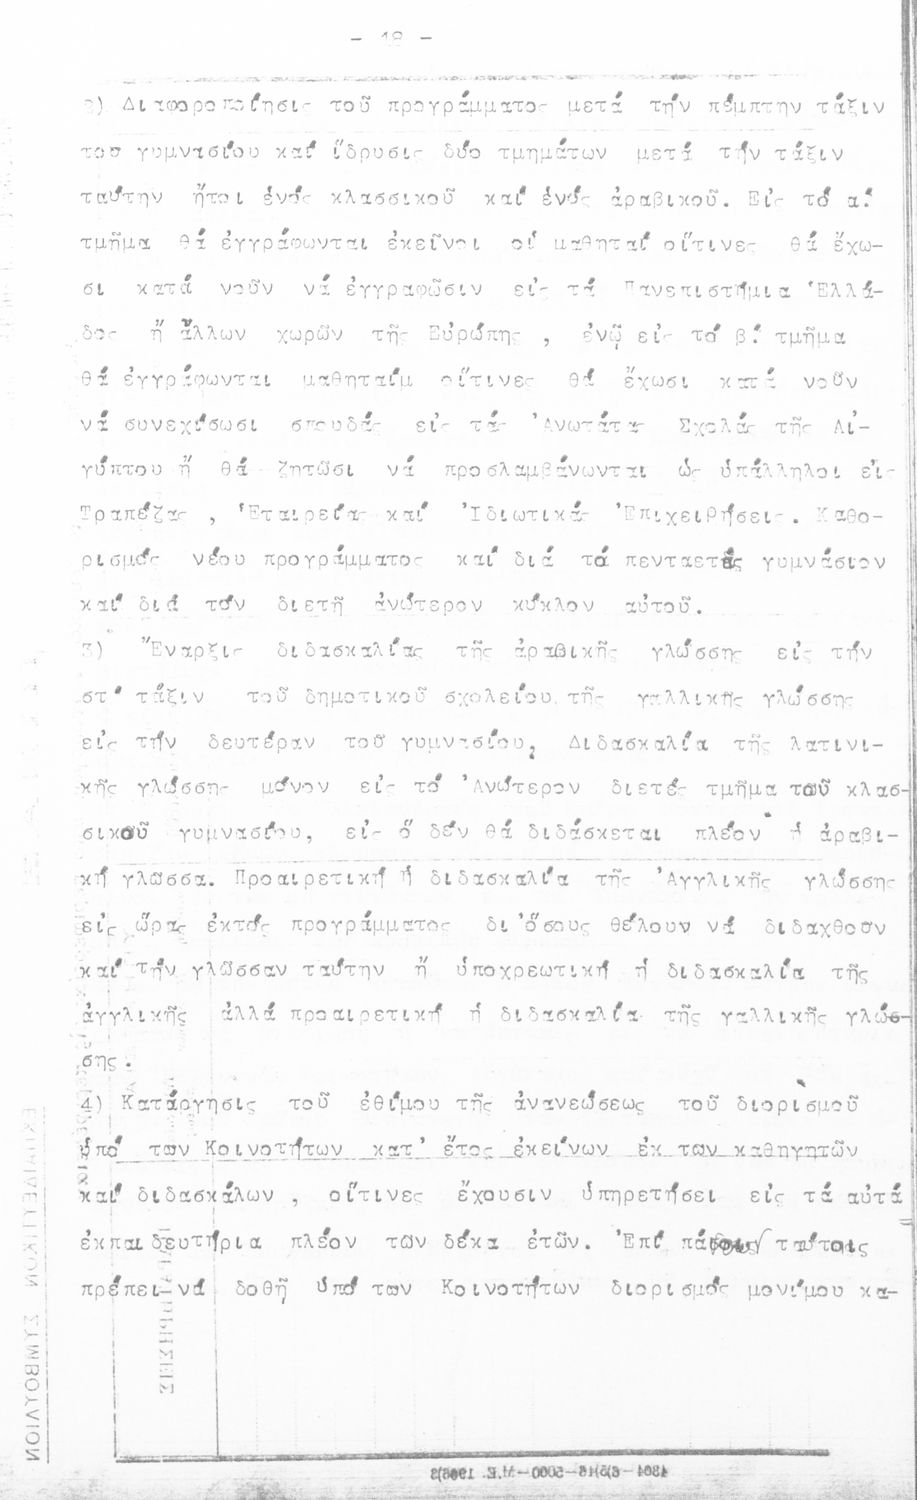 - 18 -
2) Διαφοροποίησις τοῦ προγράμματος μετά τήν πέμπτην τάξιν
τοῦ γυμνασίου καί ἵδρυσις δύο τμημάτων μετά τήν τάξιν
ταύτην ἤτοι ἑνός κλασσικοῦ καί ἑνός ἀραβικοῦ. Εἰς τό α!
τμῆμα θά ἐγγράφωνται ἐκεῖνοι οἱ μαθηταί οἵτινες θά ἔχω-
σι κατά νοῦν νά ἐγγραφῶσιν εἰς τά Πανεπιστήμια Ἑλλά-
δος ἤ ἄλλων χωρῶν τῆς Εὐρώπης , ἐνῷ εἰς τό β! τμῆμα
θά ἐγγράφωνται μαθηταίμ οἵτινες θά ἔχωσι κατά νοῦν
νά συνεχίσωσι σπουδάς εἰς τάς Ἀνωτάτας Σχολάς τῆς Αἰ-
γύπτου ἤ θά ζητῶσι νά προσλαμβάνωνται ὡς ὑπάλληλοι εἰς
Τραπέζας , Ἑταιρείας καί Ἰδιωτικάς Ἐπιχειρήσεις. Καθο-
ρισμός νέου προγράμματος καί διά τό πενταετές γυμνάσιον
καί διά τόν διετῆ ἀνώτερον κύκλον αὐτοῦ.
3) Ἔναρξις διδασκαλίας τῆς ἀραβικῆς γλώσσης εἰς τήν
στ' τάξιν τοῦ δημοτικοῦ σχολείου, τῆς γαλλικῆς γλώσσης
εἰς τήν δευτέραν τοῦ γυμνασίου, Διδασκαλία τῆς λατινι-
κῆς γλώσσης μόνον εἰς τό Ἀνώτερον διετές τμῆμα τοῦ κλασ-
σικοῦ γυμνασίου, εἰς ὅ δέν θά διδάσκεται πλέον ἡ ἀραβι-
κή γλῶσσα. Προαιρετική ἡ διδασκαλία τῆς Ἀγγλικῆς γλώσσης
εἰς ὥρας ἐκτός προγράμματος δι'ὅσους θέλουν νά διδαχθοῦν
καί τήν γλῶσσαν ταύτην ἤ ὑποχρεωτική ἡ διδασκαλία τῆς
ἀγγλικῆς ἀλλά προαιρετική ἡ διδασκαλία τῆς γαλλικῆς γλώσ-
σης.
4) Κατάργησις τοῦ ἐθίμου τῆς ἀνανεώσεως τοῦ διορισμοῦ
ὑπό τῶν Κοινοτήτων κατ' ἔτος ἐκείνων ἐκ τῶν καθηγητῶν
καί διδασκάλων , οἵτινες ἔχουσιν ὑπηρετήσει εἰς τά αὐτά
ἐκπαιδευτήρια πλέον τῶν δέκα ἐτῶν. Ἐπί ταύτοις
πρέπει νά δοθῆ ὑπό τῶν Κοινοτήτων διορισμός μονίμου κα-
ΕΚΠΑΙΔΕΥΤΙΚΟΝ ΣΥΜΒΟΥΛΙΟΝ